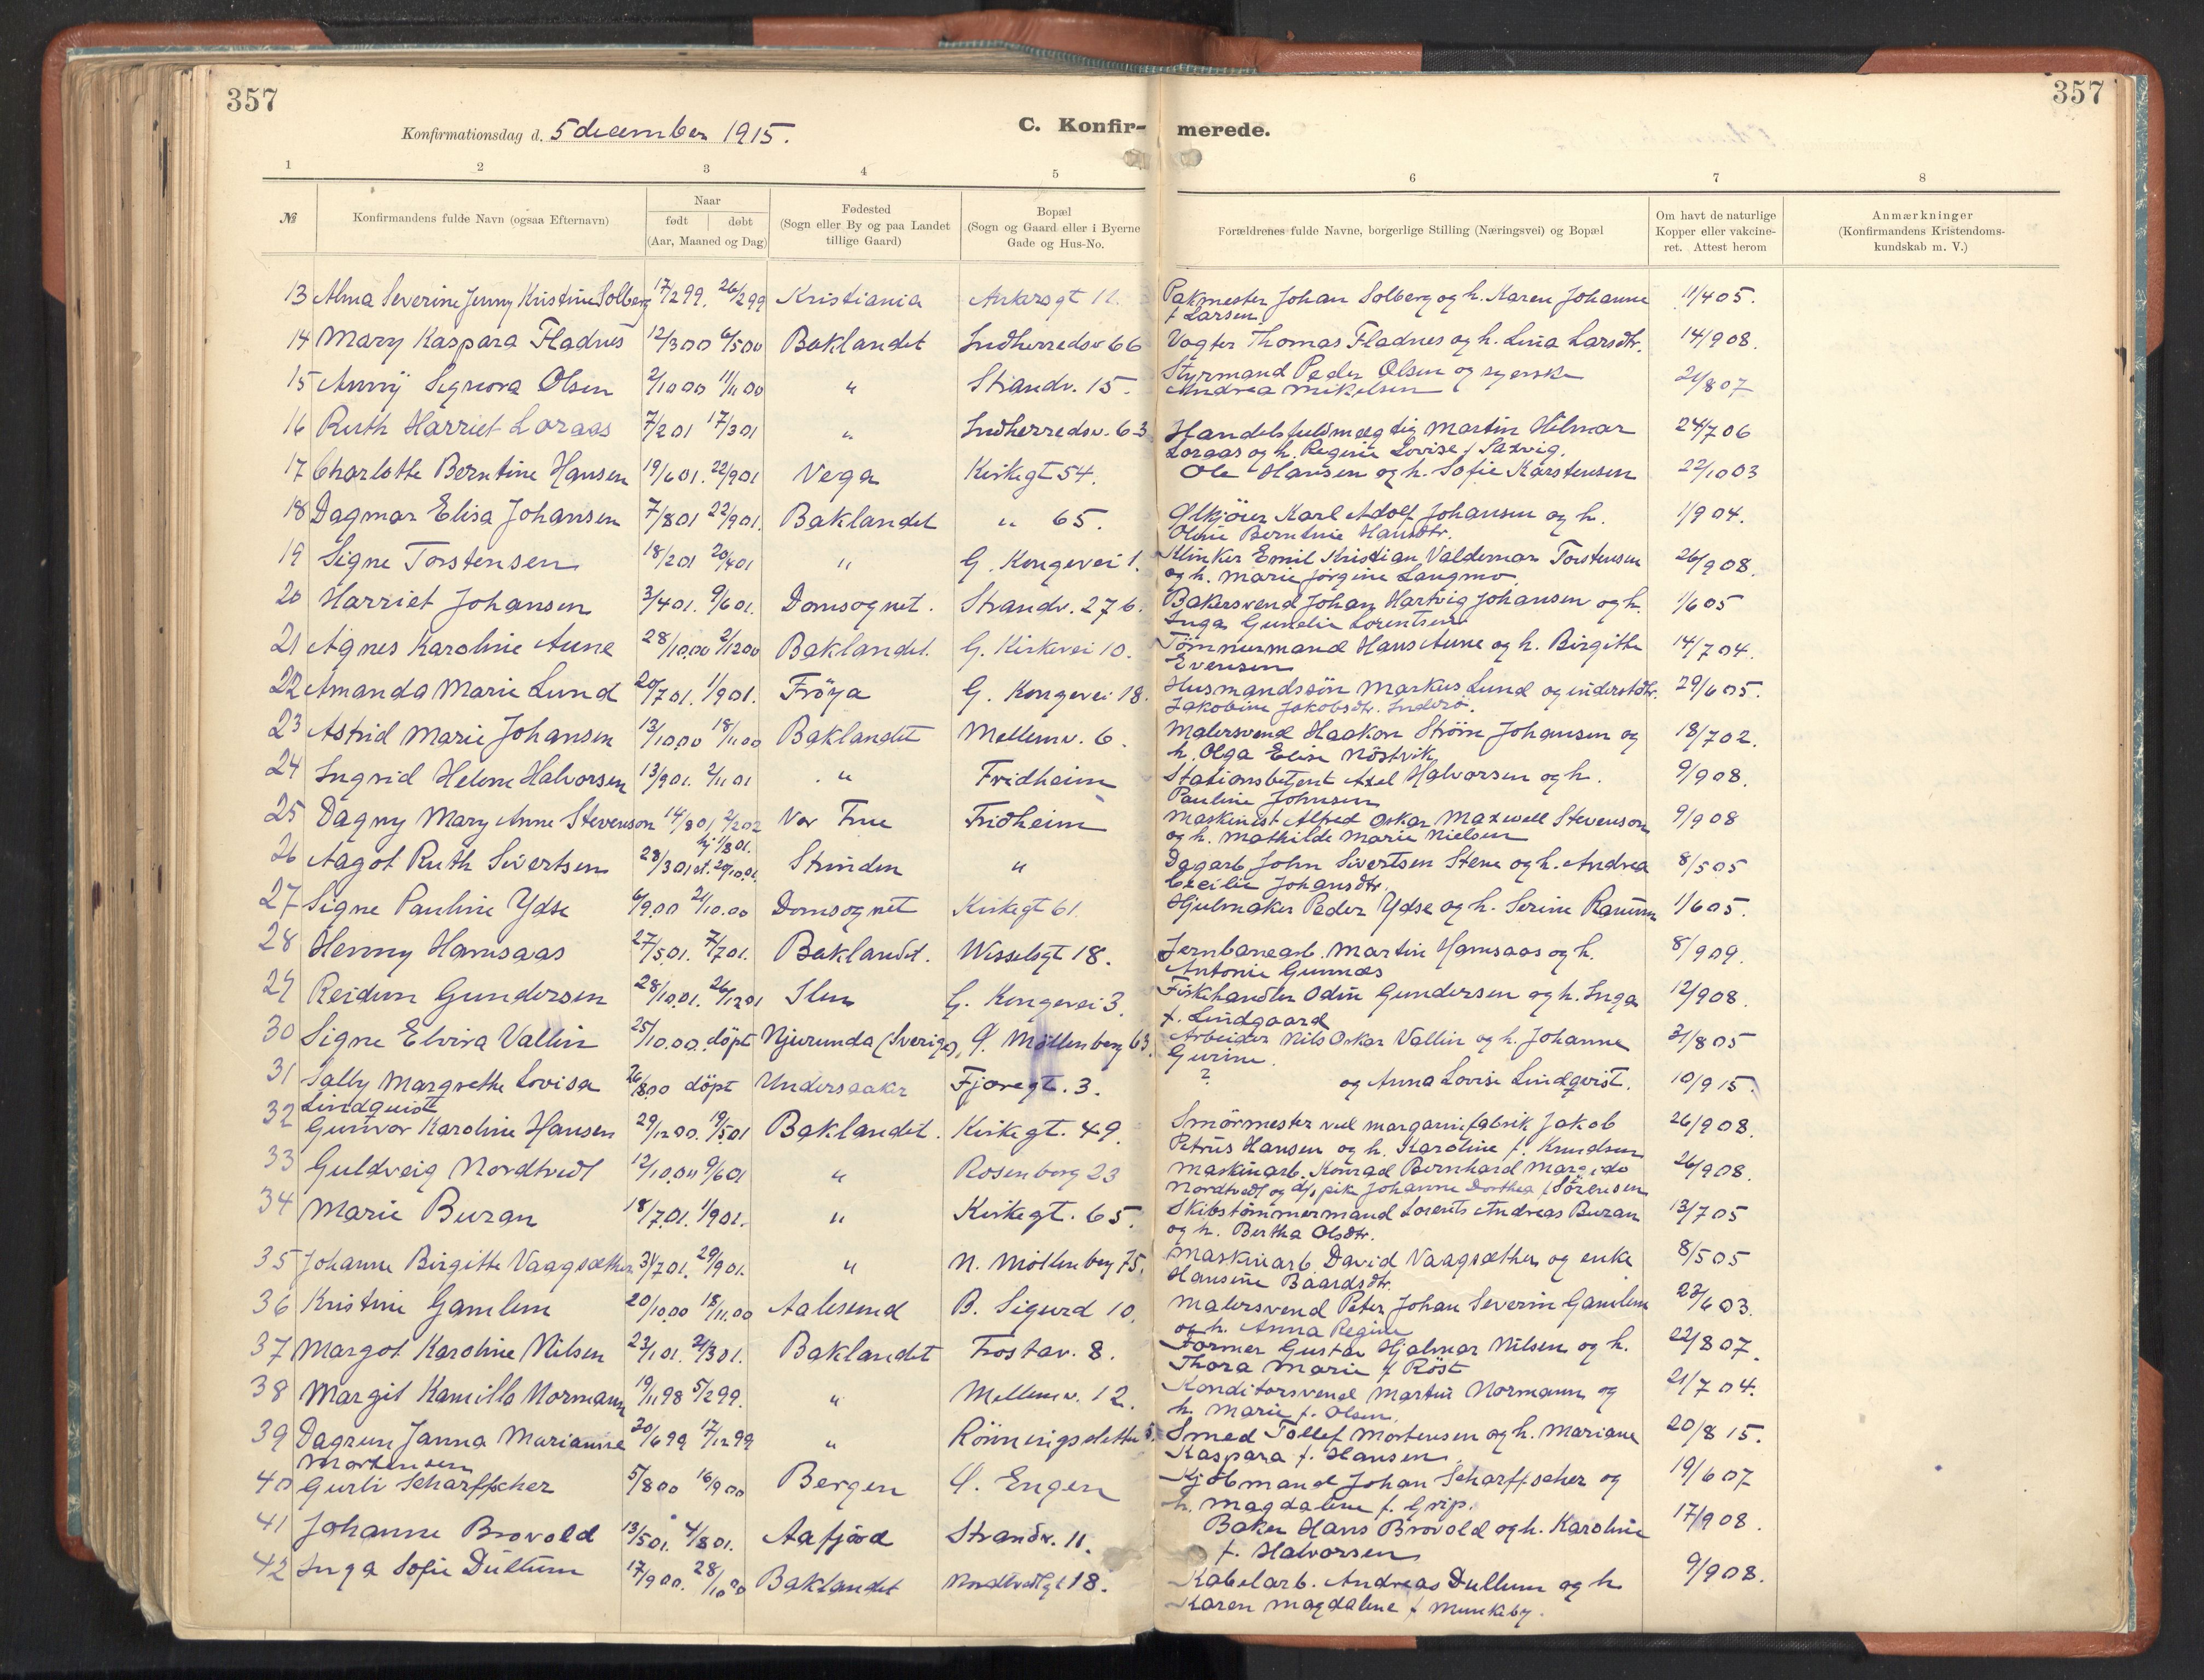 357
357
Konfirmationsdag d. 5 december 1915.
C. Konfir- merede.
1 2 3 4 5 6 7 8
№
Konfirmandens fulde Navn (ogsaa Efternavn)
Naar
født | døbt
(Aar, Maaned og Dag)
Fødested
(Sogn eller By og paa Landet
tillige Gaard)
Bopæl
(Sogn og Gaard eller i Byerne
Gade og Hus-No.
Forældrenes fulde Navne, borgerlige Stilling (Næringsvei) og Bopæl
Om havt de naturlige
Kopper eller vakcine-
ret. Attest herom
Anmærkninger
(Konfirmandens Kristendoms-
kundskab m. V.)
13 Alma Severine Jenny Kristine Solberg 17/2 99. 26/2 99 Kristiania Ankersgt 11. Pakmester Johan Solberg og h. Karen Johanne 11/4 05.
f Larsen
14 Mary Kaspara Fladnes 12/3 00 6/5 00 Baklandet Indherredsv 66 Vagter Thomas Fladnes og h. Lina Larsdtr. 14/9 08.
15 Anny Signora Olsen 2/10 00 11/11 00 " Strandv. 15. Styrmand Peder Olsen og syerske 21/8 07
Andrea Mikelsen
16 Ruth Harriet Loraas 7/2 01 17/3 01 " Indherredsv. 63 Handelsfuldmægtig Martin Hilmar 24/7 06
Loraas og h. Regine Lovise f Saxvig.
17 Charlotte Berntine Hansen 19/6 01. 22/9 01 Vega Kirkegt 54. Ole Hansen og h. Sofie Karstensen 22/10 03
18 Dagmar Elisa Johansen 7/8 01 22/9 01. Baklandet " 65. Ølkjører Karl Adolf Johansen og h. 1/9 04.
Oline Berntine Hansdtr.
19 Signe Torstensen 18/2 01 20/4 01 " G. Kongevei 1. Klinker Emil Kristian Valdemar Torstensen 26/9 08.
og h. Marie Jørgine Langmo
20 Harriet Johansen 3/4 01. 9/6 01. Domsognet. Strandv. 27 b. Bakersvend Johan Hartvig Johansen og h. 1/6 05
Inga Gunelie Lorentsen
21 Agnes Karoline Aune 28/10 00 2/12 00 Baklandet. G. Kirkevei 10. Tømmermand Hans Aune og h. Birgitte 14/7 04.
Evensen
22 Amanda Marie Lund 20/7 01. 1/9 01. Frøya G. Kongevei 18. Husmandssøn Markus Lund og inderstdtr. 29/6 05.
Jakobine Jakobsdtr. Inderø.
23 Astrid Marie Johansen 13/10 00 18/11 00 Baklandet Mellemv. 6. Malersvend Haakon Strøm Johansen og 18/7 02.
h. Olga Elise Nøstvik
24 Ingrid Helene Halvorsen 13/9 01. 2/11 01 " Fridheim Stationsbetjent Axel Halvorsen og h. 9/9 08.
Pauline Johnsen
25 Dagny Mary Anne Stevenson 14/8 01, 2/2 02 Vor Frue Fridheim Maskinist Alfred Oskar Maxwell Stevenson 9/9 08
og h. Mathilde Marie Nielsen
26 Aagot Ruth Sivertsen 28/3 01 hj 1/8 01. st. 29/10 01. Strinden " Dagarb John Sivertsen Stene og h. Andrea 8/5 05
Cecilie Johansdtr.
27 Signe Pauline Ydse 6/9.00 21/10.00 Domsognet Kirkegt 61. Hjulmaker Peder Ydse og h. Serine Ranum 1/6 05.
28 Henny Hamsaas 27/5 01. 7/7 01. Baklandet. Wisselsgt 18. Jernbanearb. Martin Hamsaas og h. 8/9 09.
Antonie Gunnæs
29 Reidun Gundersen 28/10 01. 26/12 01 Ilen G. Kongevei 3. Fiskhandler Odin Gundersen og h. Inga 12/9 08.
f. Lindgaard
30 Signe Elvira Vallin 25/10.00. döpt Njurunda (Sverige), Ø. Møllenberg 63. Arbeider Nils Oskar Vallin og h. Johanne 31/8 05
Gurine.
31 Sally Margrethe Lovisa 26/8 00 döpt Undersaaker Fjæregt. 3. ? og Anna Lovise Lindqvist. 10/9 15.
Lindquist
32 Gunvor Karoline Hansen 29/12 00. 19/5 01 Baklandet. Kirkegt. 49. Smørmester ved margarinfabrik Jakob 26/9 08.
Petrus Hansen og h. Karoline f. Knudsen
33 Guldveig Nordtvedt 12/10.00 9/6 01 " Rosenborg 23 Maskinarb. Konrad Bernhard Margido 26/9 08.
Nordtvedt og d/s pike Johanne Dorthea f Sørensen
34 Marie Buran 18/7 01. 1/9 01. " Kirkegt. 65. Skibstømmermand Lorents Andreas Buran 13/7 05
og h. Bertha Olsdtr.
35 Johanne Birgitte Vaagsæther 31/7 01. 29/9 01. " N. Møllenberg 75. Maskinarb. David Vaagsæther og enke 8/5 05
Hansine Baardsdtr.
36 Kristine Gamlem 20/10 00 18/11.00 Aalesund B. Sigurd 10. Malersvend Peter Johan Severin Gamlem 23/6 03.
og h. Anna Regine
37 Margot Karoline Nilsen 23/1 01. 21/3 01. Baklandet Frostav. 8. Former Gustav Hjalmar Nilsen og h. 22/8 07.
Thora Marie f Røst
38 Margit Kamilla Normann 19/11 98 5/2 99. " Mellemv. 12. Konditorsvend Martin Normann og 21/7 04.
h. Marie f. Olsen.
39 Dagrun Janna Marianne 20/6 99 17/12 99 " Rønningsletta 5. Smed Tollef Mortensen og h. Mariane 20/8 15.
Mortensen Kaspara f. Hansen
40 Gurli Scharffscher 5/8 00 16/9 00 Bergen Ø. Engen Kjøbmand Johan Scharffscher og 19/6 07
h. Magdalene f. Grip.
41 Johanne Brovold 13/5 01. 4/8 01. Aafjord Strandv. 11. Baker Hans Brovold og h. Karoline 17/9 08.
f. Halvorsen
42 Inga Sofie Dullum 17/9 00. 28/10 00 Baklandet Nordtvedtgt 18. Kabelarb. Andreas Dullum og h 9/9 08.
Karen Magdalene f Munkeby.